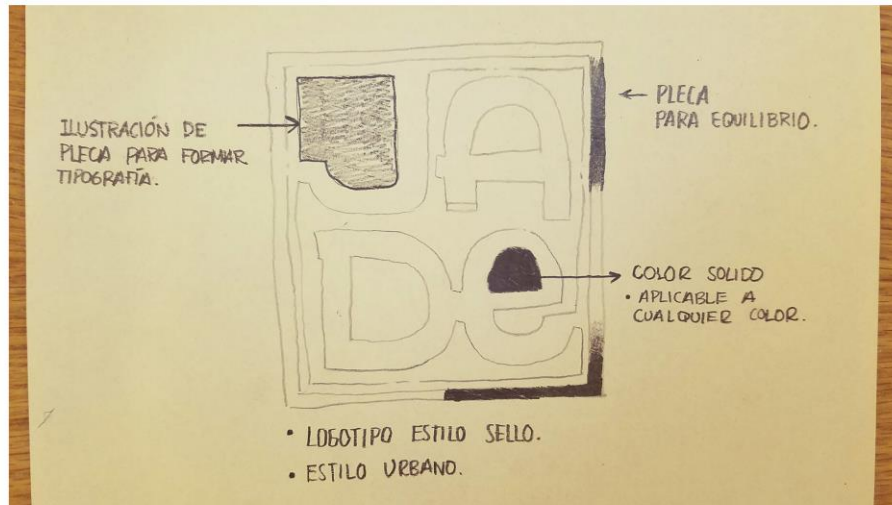 ILUSTRACIÓN DE
PLECA PARA FORMAR
TIPOGRAFÍA.
JA
De
← PLECA
PARA EQUILIBRIO.
COLOR SOLIDO
• APLICABLE A
CUALQUIER COLOR.
• LOGOTIPO ESTILO SELLO.
• ESTILO URBANO.